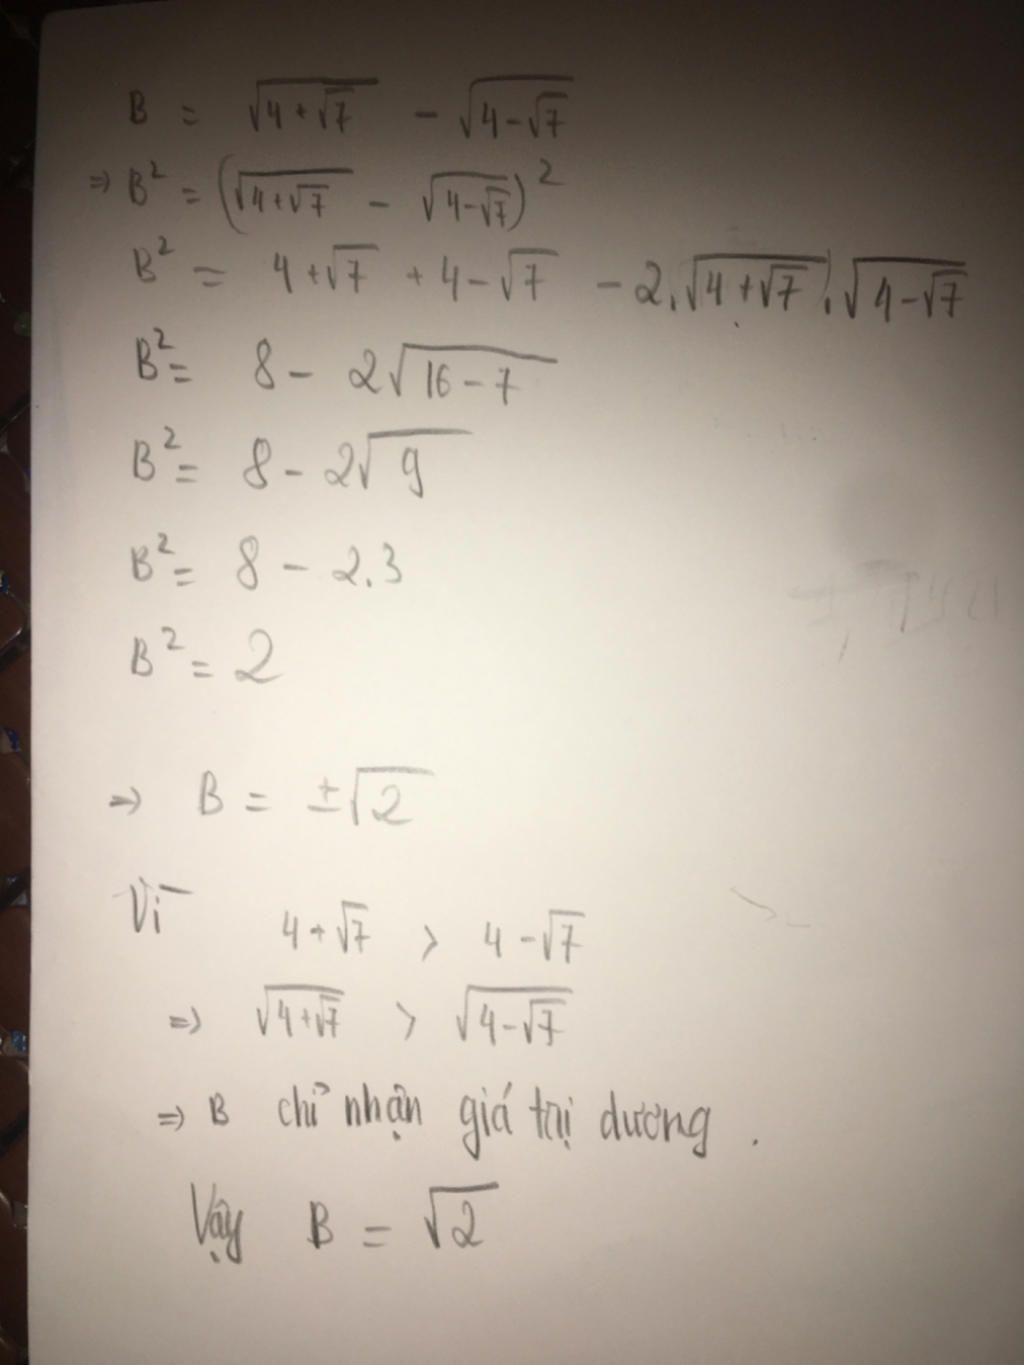 B = √(4+√7) - √(4-√7)
⇒ B² = (√(4+√7) - √(4-√7))²
B² = 4+√7 + 4-√7 - 2.√(4+√7).√(4-√7)
B² = 8 - 2√(16-7)
B² = 8 - 2√9
B² = 8 - 2.3
B² = 2
⇒ B = ±√2
Vì 4+√7 > 4-√7
⇒ √(4+√7) > √(4-√7)
⇒ B chỉ nhận giá trị dương.
Vậy B = √2